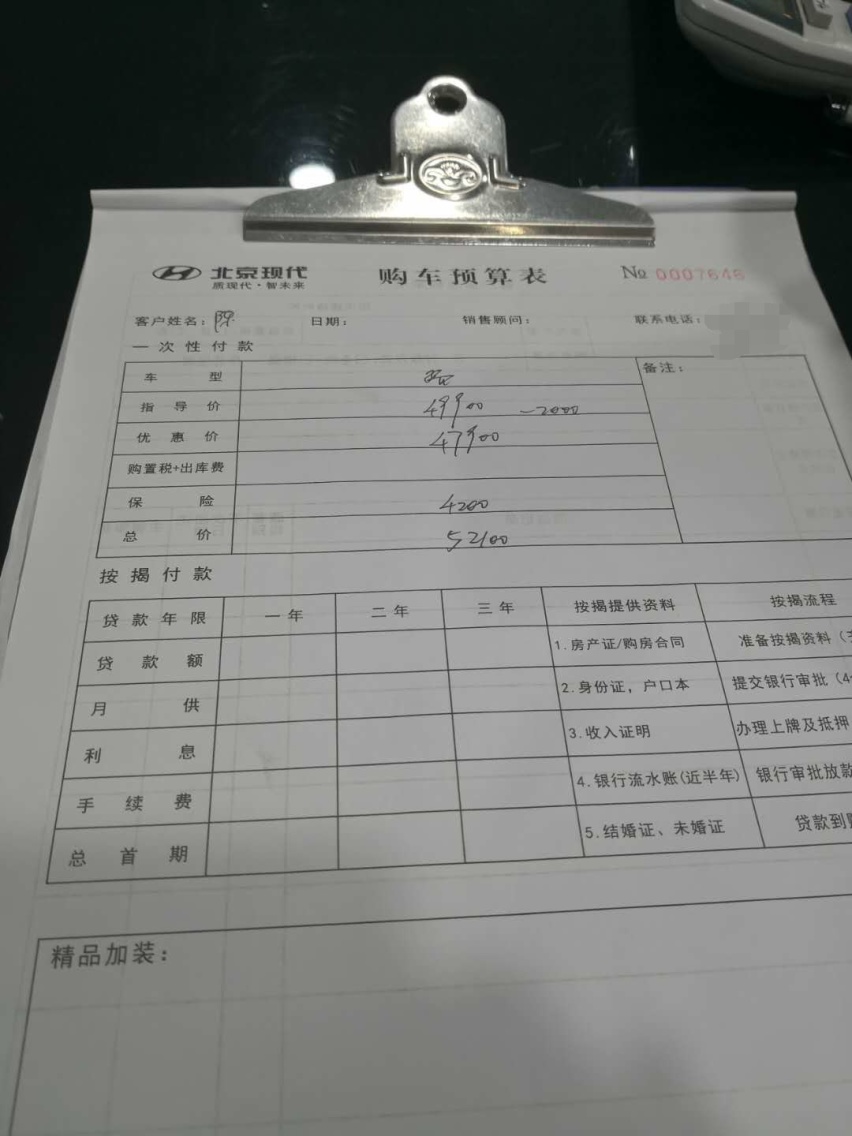 北京现代 购车预算表 № 0007646
质现代·智未来
客户姓名:陈 日期: 销售顾问: 联系电话:
一次性付款
车型 备注:
指导价 49900 -2000
优惠价 47900
购置税+出库费
保险 4200
总价 52100
按揭付款
贷款年限 一年 二年 三年 按揭提供资料 按揭流程
贷款额 1.房产证/购房合同 准备按揭资料
月供 2.身份证,户口本 提交银行审批(4
利息 3.收入证明 办理上牌及抵押
手续费 4.银行流水账(近半年) 银行审批放款
总首期 5.结婚证、未婚证 贷款到
精品加装: